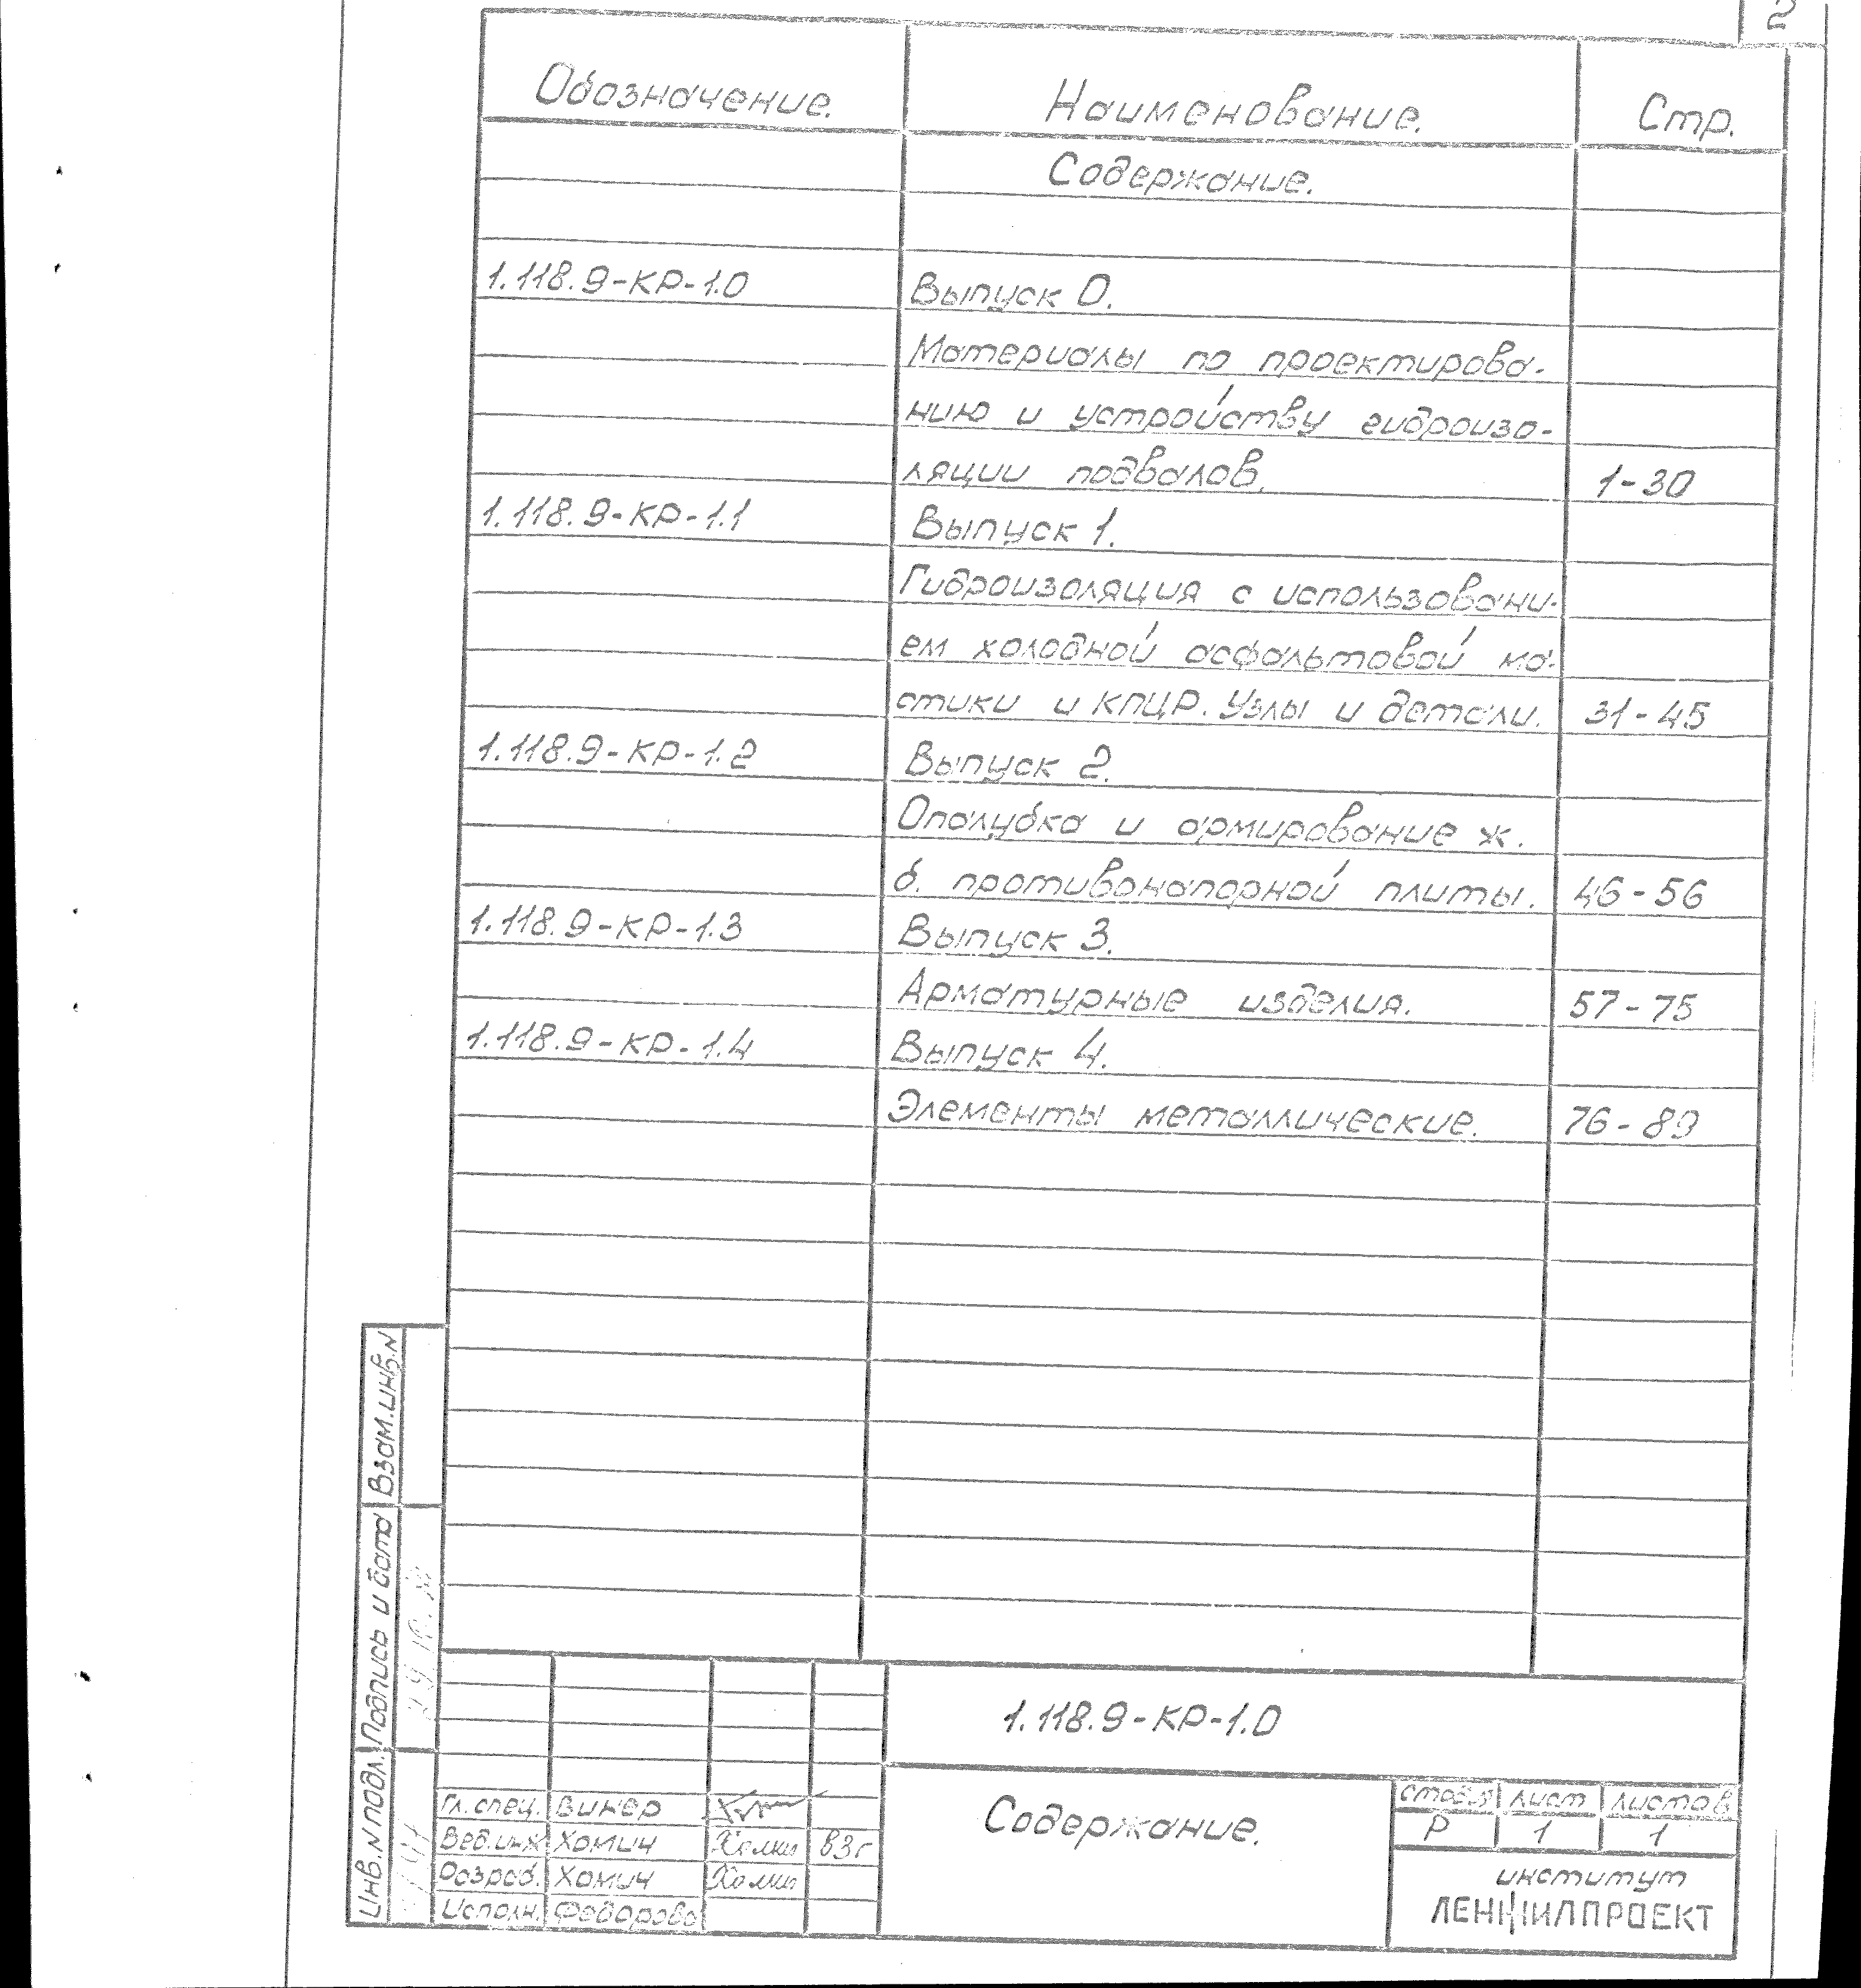 2
Обозначение. Наименование. Стр.
Содержание.
1.118.9-КР-1.0 Выпуск 0.
Материалы по проектирова-
нию и устройству гидроизо-
ляции подвалов. 1-30
1.118.9-КР-1.1 Выпуск 1.
Гидроизоляция с использовани-
ем холодной асфальтовой ма-
стики и КПЦР. Узлы и детали. 31-45
1.118.9-КР-1.2 Выпуск 2.
Опалубка и армирование ж.
б. противонапорной плиты. 46-56
1.118.9-КР-1.3 Выпуск 3.
Арматурные изделия. 57-75
1.118.9-КР-1.4 Выпуск 4.
Элементы металлические. 76-89
Взам.инв.N
Подпись и дата
Инв.N подл.
1.118.9-КР-1.0
Гл. спец. Винер
Вед.инж Хомич 83г
Разраб. Хомич
Исполн. Федорова
Содержание.
стадия лист листов
Р 1 1
институт
ЛЕНЖИЛПРОЕКТ